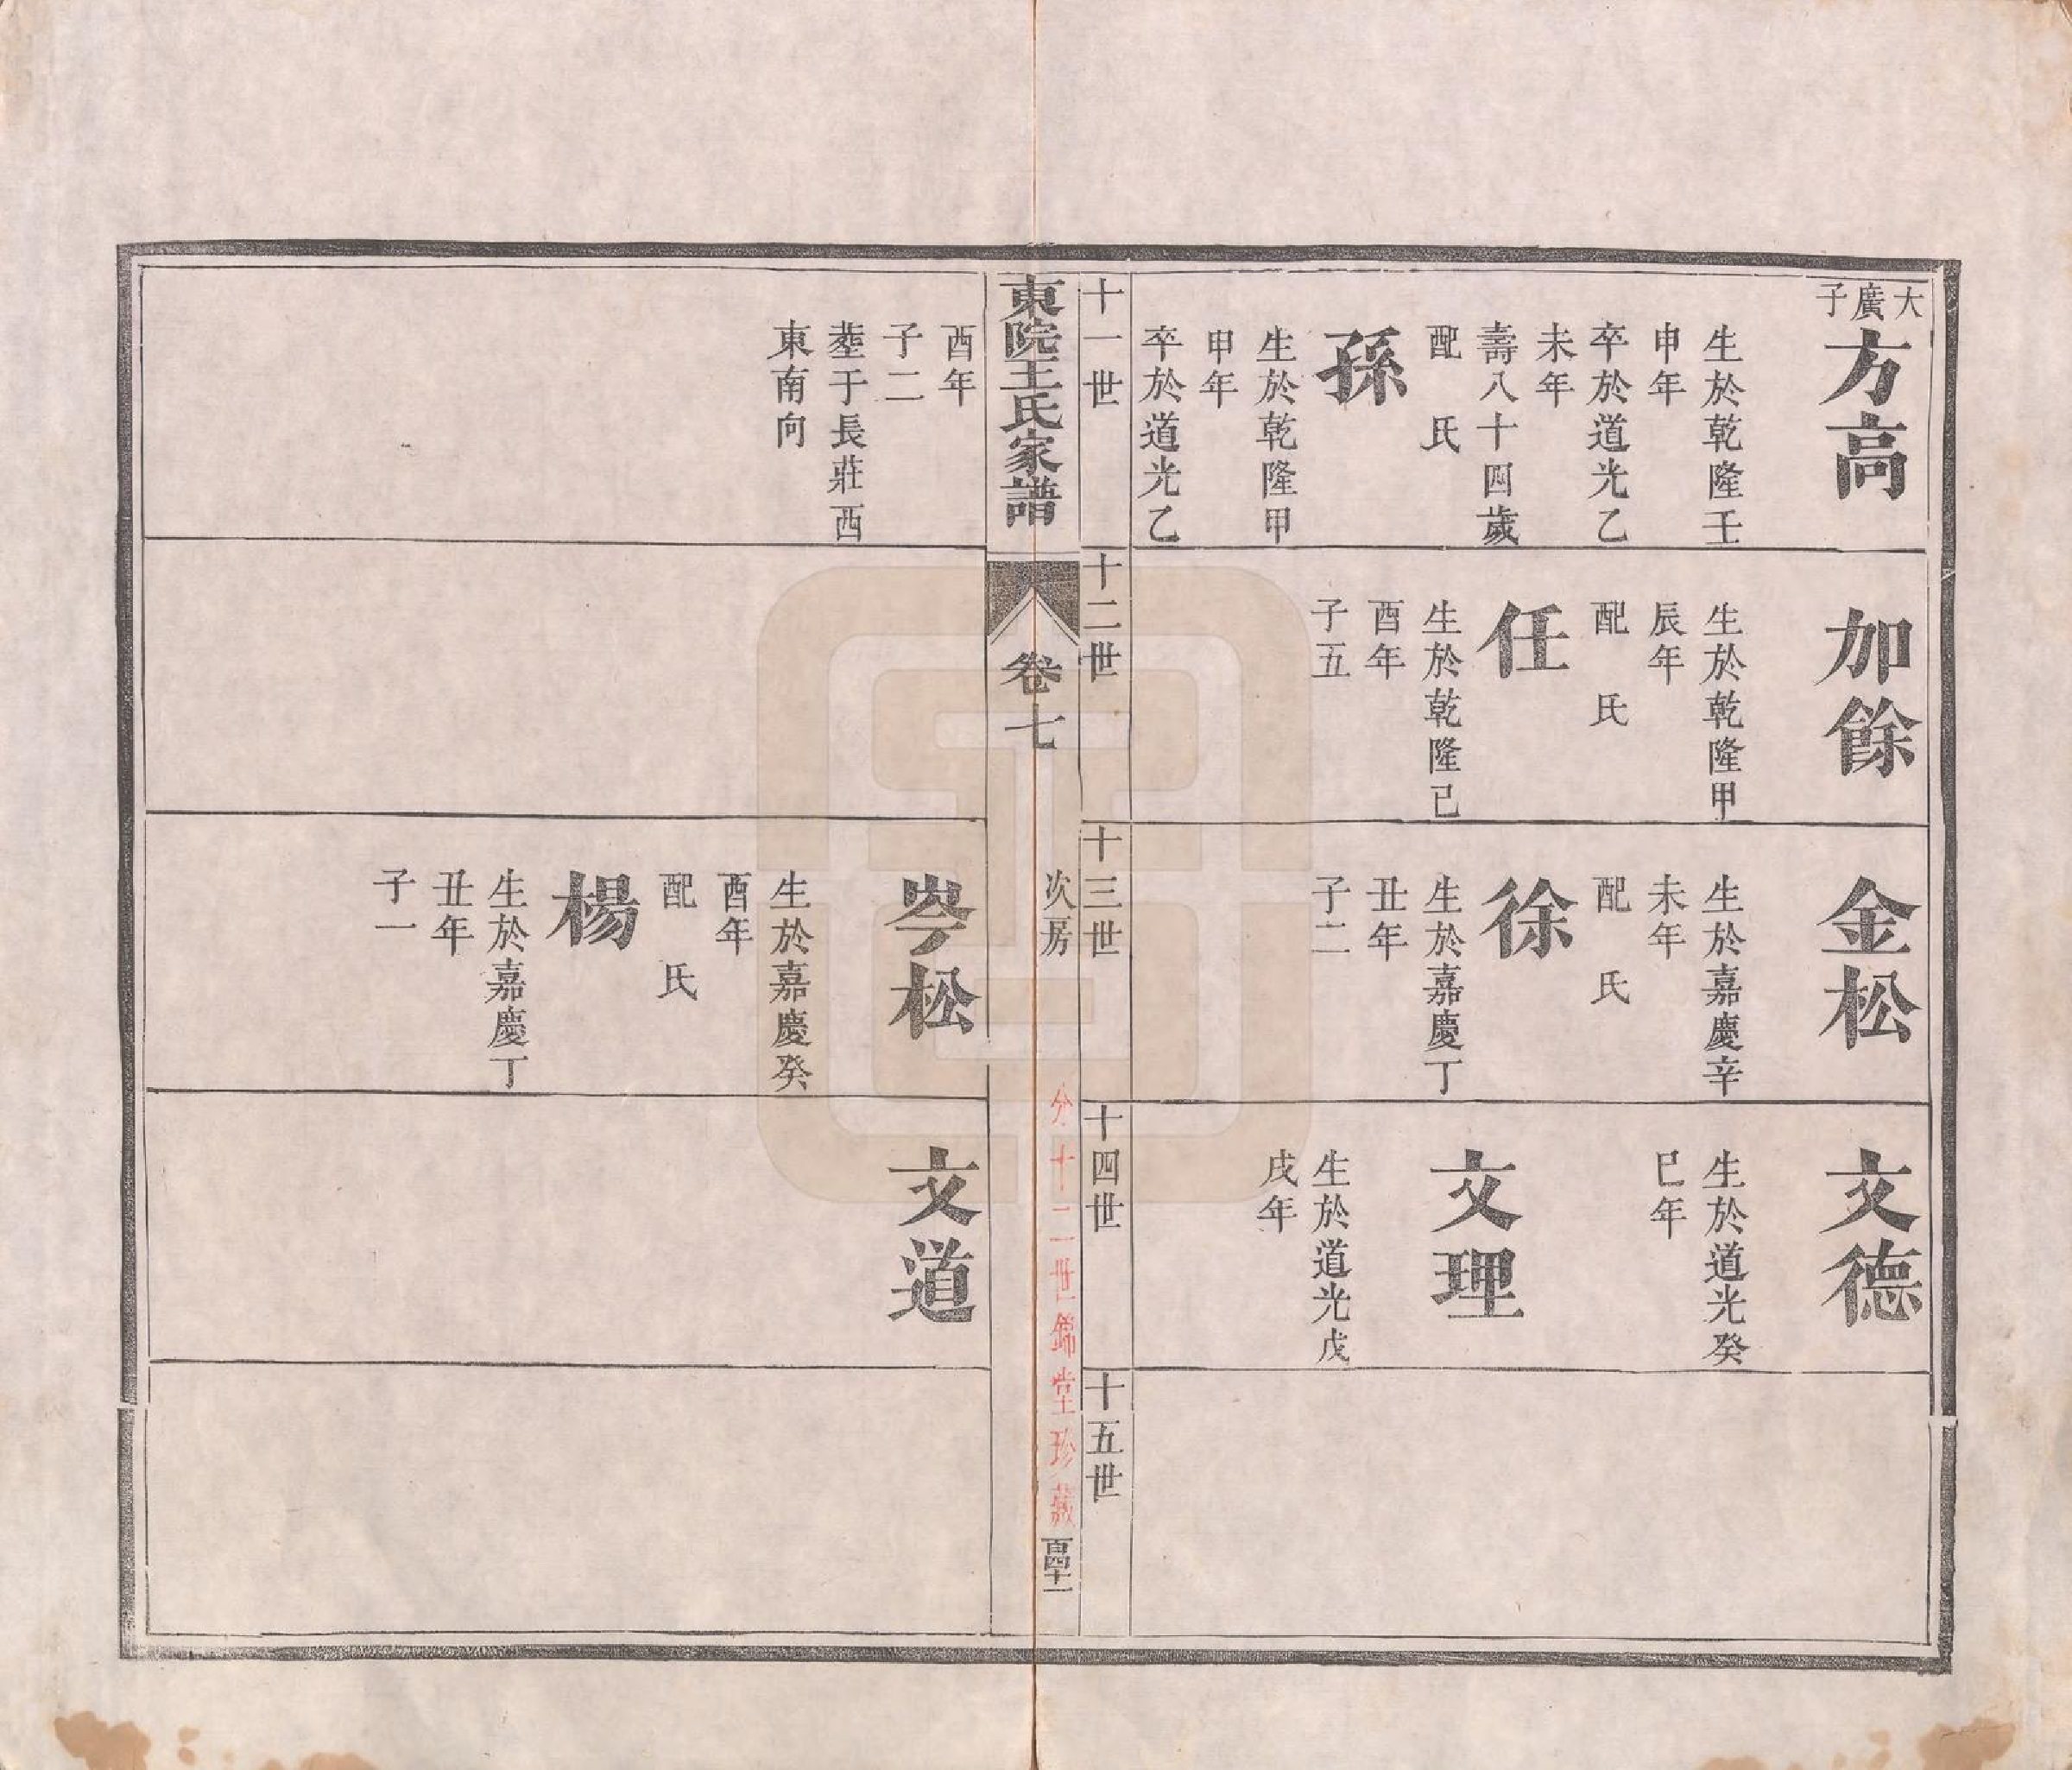 大廣子
方高
生於乾隆壬
申年
卒於道光乙
未年
壽八十四歲
配 氏
孫
生於乾隆甲
甲年
卒於道光乙
十一世
加餘
生於乾隆甲
辰年
配 氏
任
生於乾隆己
酉年
子五
十二世
金松
生於嘉慶辛
未年
配 氏
徐
生於嘉慶丁
丑年
子二
十三世
文德
生於道光癸
巳年
文理
生於道光戊
戌年
十四世
十五世
東院王氏家譜
卷七
次房
分十二世錦堂珍藏
百四十一
酉年
子二
塟于長莊西
東南向
岑松
生於嘉慶癸
酉年
配 氏
楊
生於嘉慶丁
丑年
子一
文道